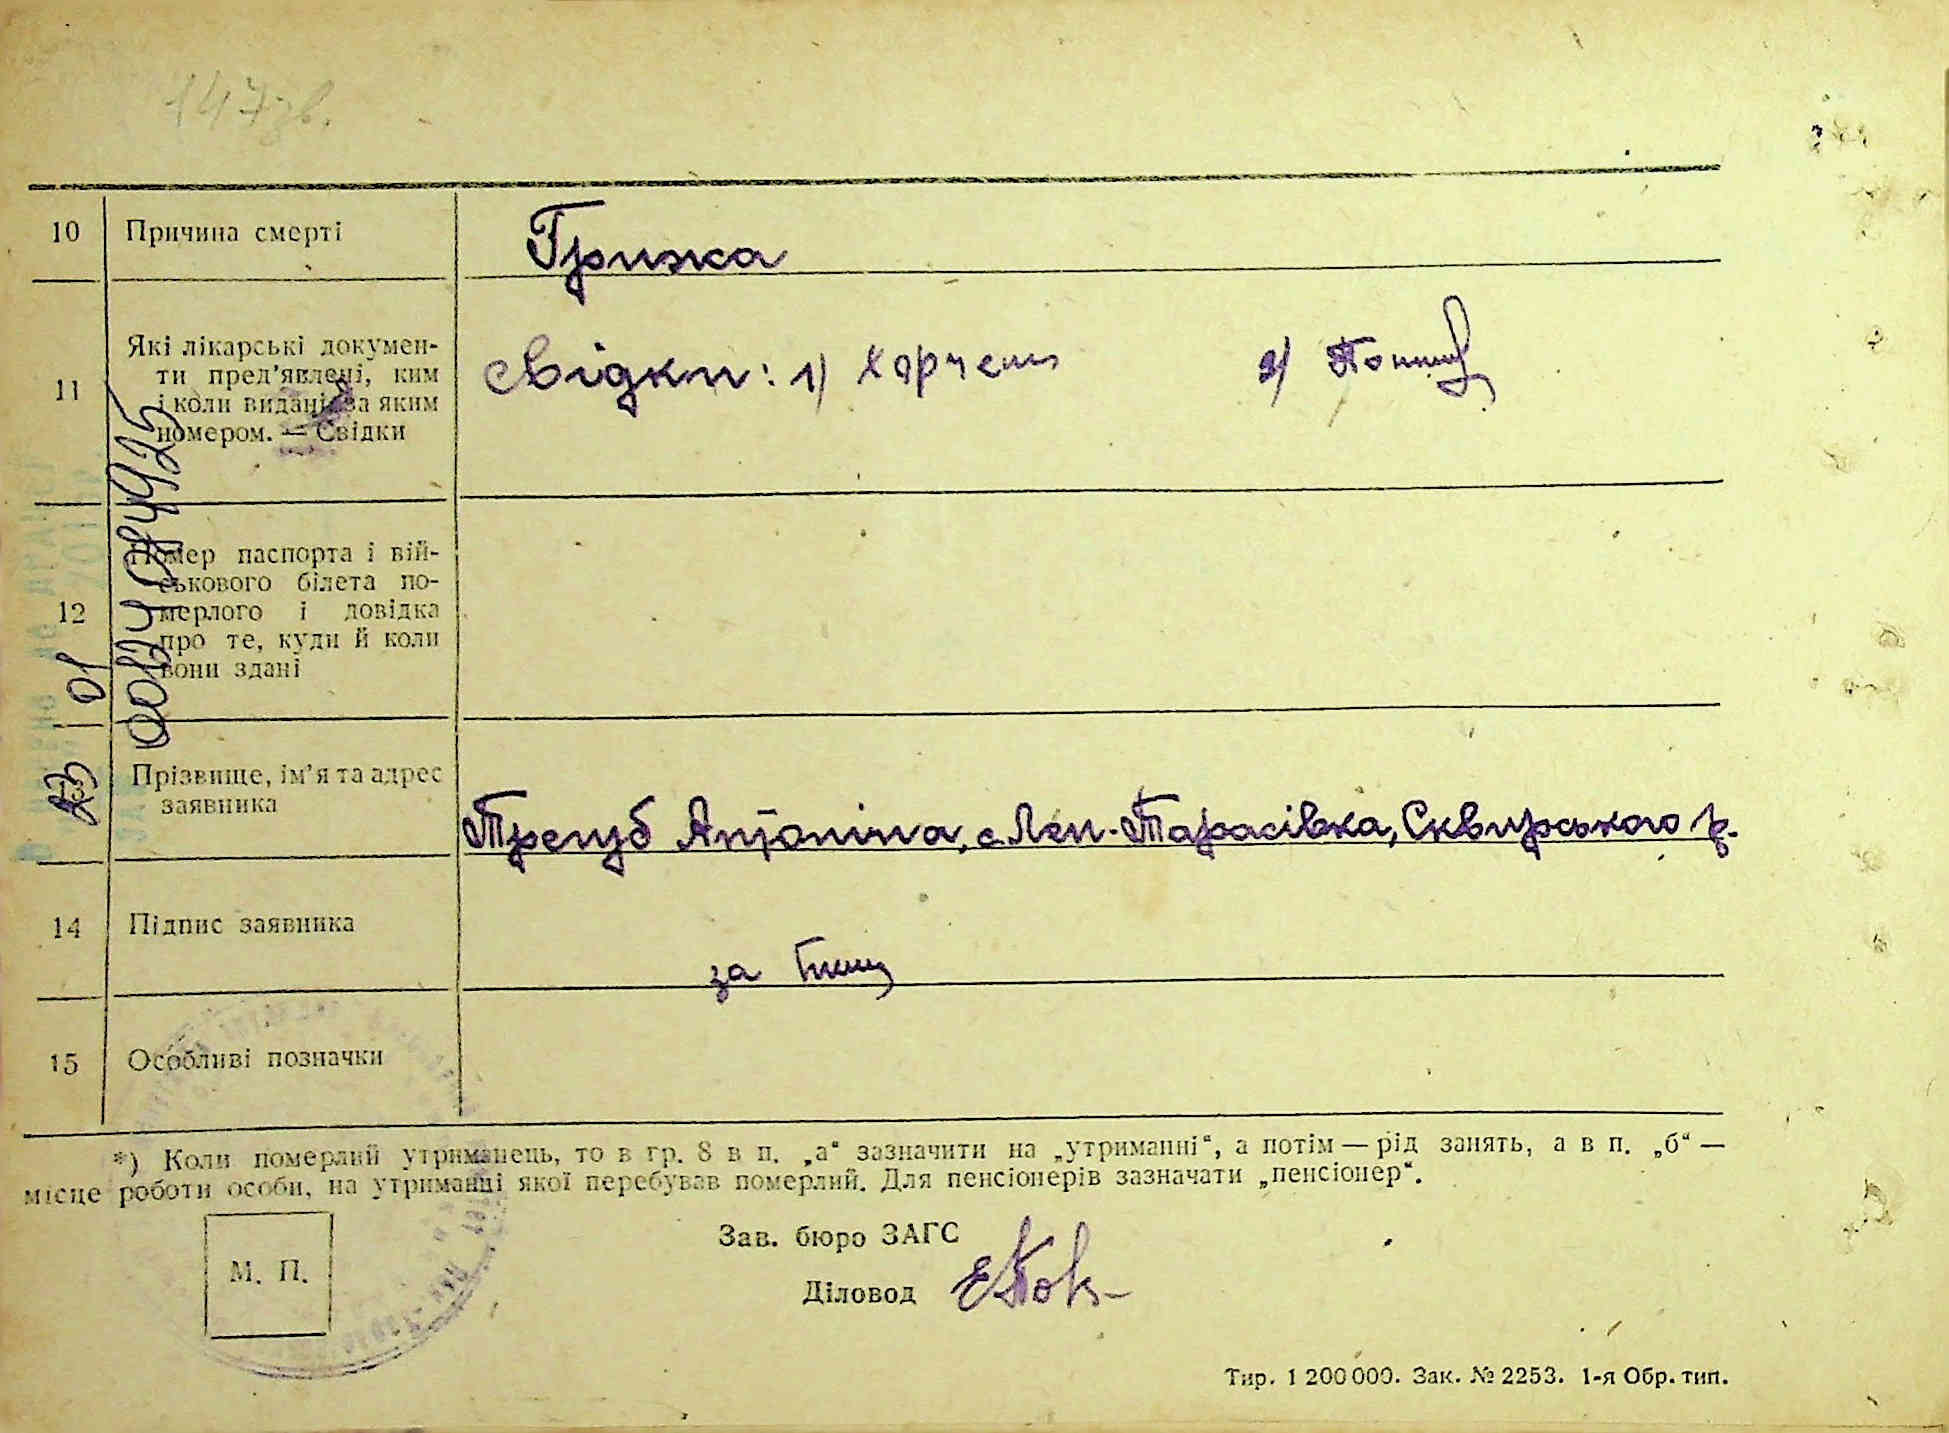 147зв.
10 Причина смерті Грижа
11 Які лікарські докумен-
ти пред'явлені, ким
і коли видані за яким
номером. — Свідки
свідки: 1) Харчен 2)
12 Номер паспорта і вій-
ськового білета по-
мерлого і довідка
про те, куди й коли
вони здані
Прізвище, ім'я та адрес
заявника
Трегуб Антоніна, с. Лен. Тарасівка, Сквирського р.
14 Підпис заявника
за
15 Особливі позначки
*) Коли померлий утриманець, то в гр. 8 в п. „а“ зазначити на „утриманні“, а потім — рід занять, а в п. „б“ —
місце роботи особи, на утриманні якої перебував померлий. Для пенсіонерів зазначати „пенсіонер“.
М. П.
Зав. бюро ЗАГС
Діловод
Тир. 1 200 000. Зак. № 2253. 1-я Обр. тип.
23 01